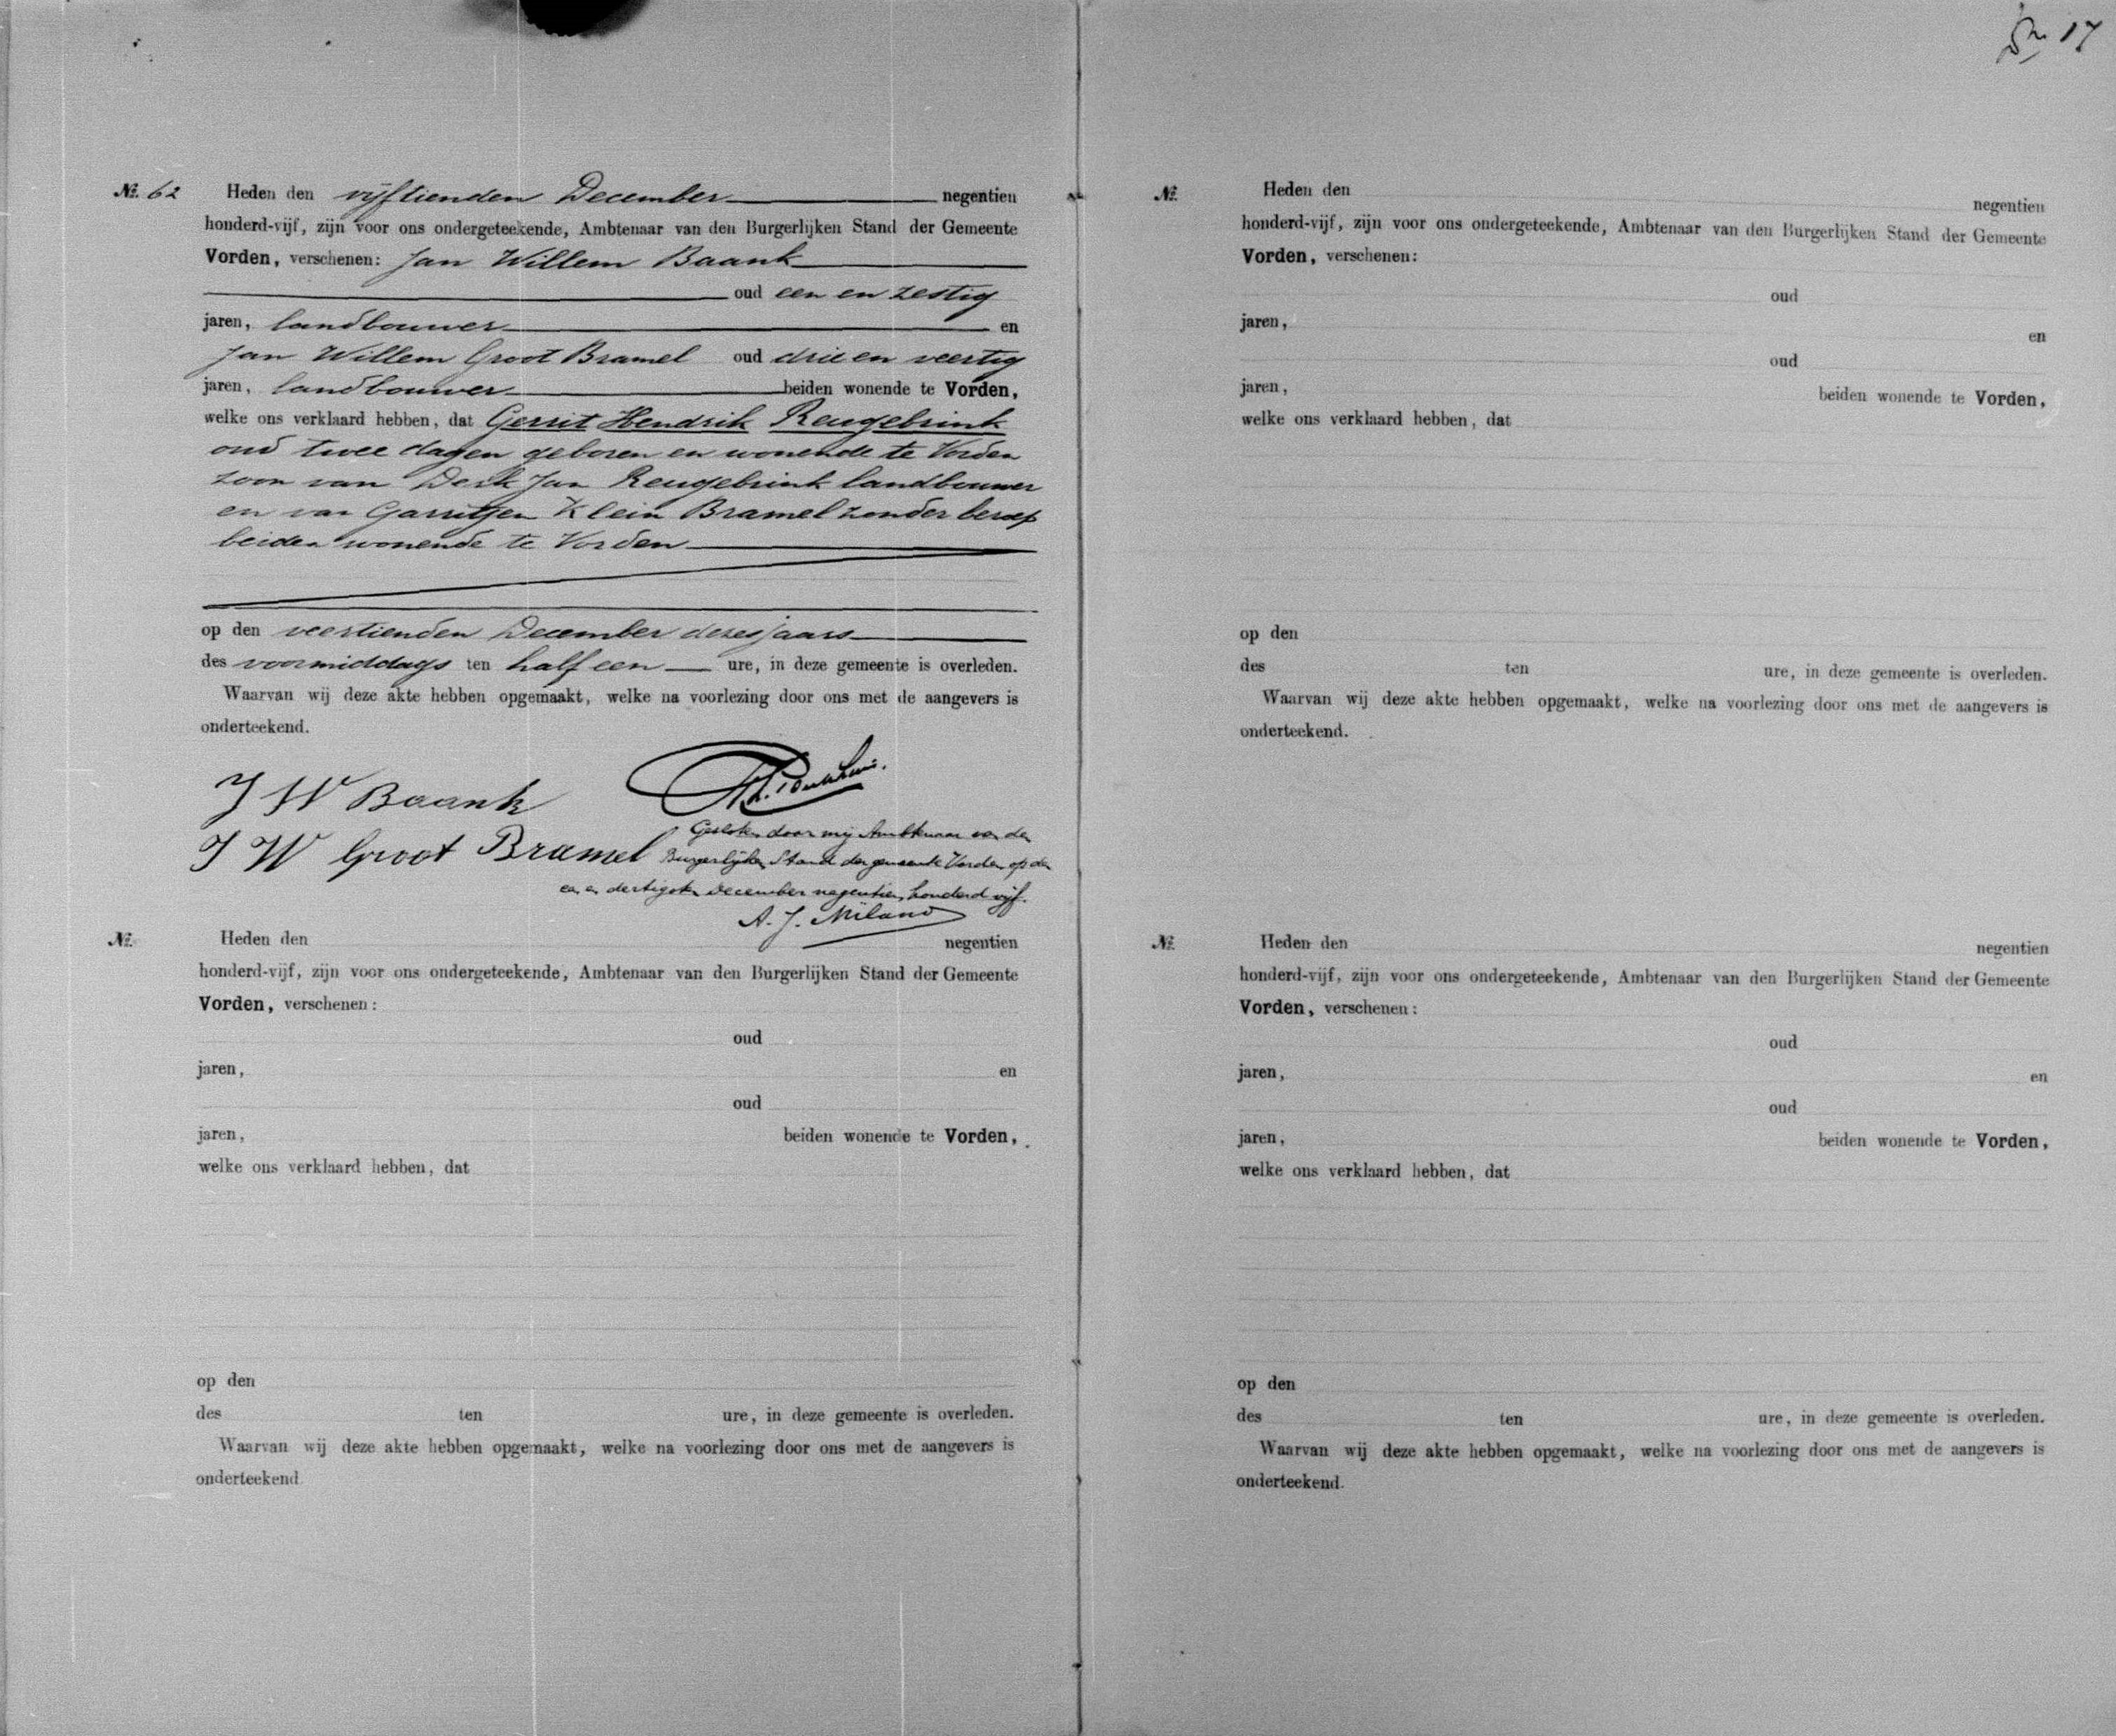 17
No. 62 Heden den vijftienden December negentien
honderd-vijf, zijn voor ons ondergeteekende, Ambtenaar van den Burgerlijken Stand der Gemeente
Vorden, verschenen: Jan Willem Baank
oud een en zestig
jaren, landbouwer en
Jan Willem Groot Bramel oud drie en veertig
jaren, landbouwer beiden wonende te Vorden,
welke ons verklaard hebben, dat Gerrit Hendrik Reugebrink
oud twee dagen geboren en wonende te Vorden
zoon van Derk Jan Reugebrink landbouwer
en van Garritjen Klein Bramel zonder beroep
beiden wonende te Vorden
op den veertienden December dezes jaars
des voormiddags ten half een ure, in deze gemeente is overleden.
Waarvan wij deze akte hebben opgemaakt, welke na voorlezing door ons met de aangevers is
onderteekend.
J W Baank
J W Groot Bramel
Gesloten door mij Ambtenaar van den
Burgerlijken Stand der gemeente Vorden op den
een en dertigsten December negentien honderd vijf.
A. J. Milano
No. Heden den negentien
honderd-vijf, zijn voor ons ondergeteekende, Ambtenaar van den Burgerlijken Stand der Gemeente
Vorden, verschenen:
oud
jaren, en
oud
jaren, beiden wonende te Vorden,
welke ons verklaard hebben, dat
op den
des ten ure, in deze gemeente is overleden.
Waarvan wij deze akte hebben opgemaakt, welke na voorlezing door ons met de aangevers is
onderteekend.
No. Heden den negentien
honderd-vijf, zijn voor ons ondergeteekende, Ambtenaar van den Burgerlijken Stand der Gemeente
Vorden, verschenen:
oud
jaren, en
oud
jaren, beiden wonende te Vorden,
welke ons verklaard hebben, dat
op den
des ten ure, in deze gemeente is overleden.
Waarvan wij deze akte hebben opgemaakt, welke na voorlezing door ons met de aangevers is
onderteekend.
No. Heden den negentien
honderd-vijf, zijn voor ons ondergeteekende, Ambtenaar van den Burgerlijken Stand der Gemeente
Vorden, verschenen:
oud
jaren, en
oud
jaren, beiden wonende te Vorden,
welke ons verklaard hebben, dat
op den
des ten ure, in deze gemeente is overleden.
Waarvan wij deze akte hebben opgemaakt, welke na voorlezing door ons met de aangevers is
onderteekend.